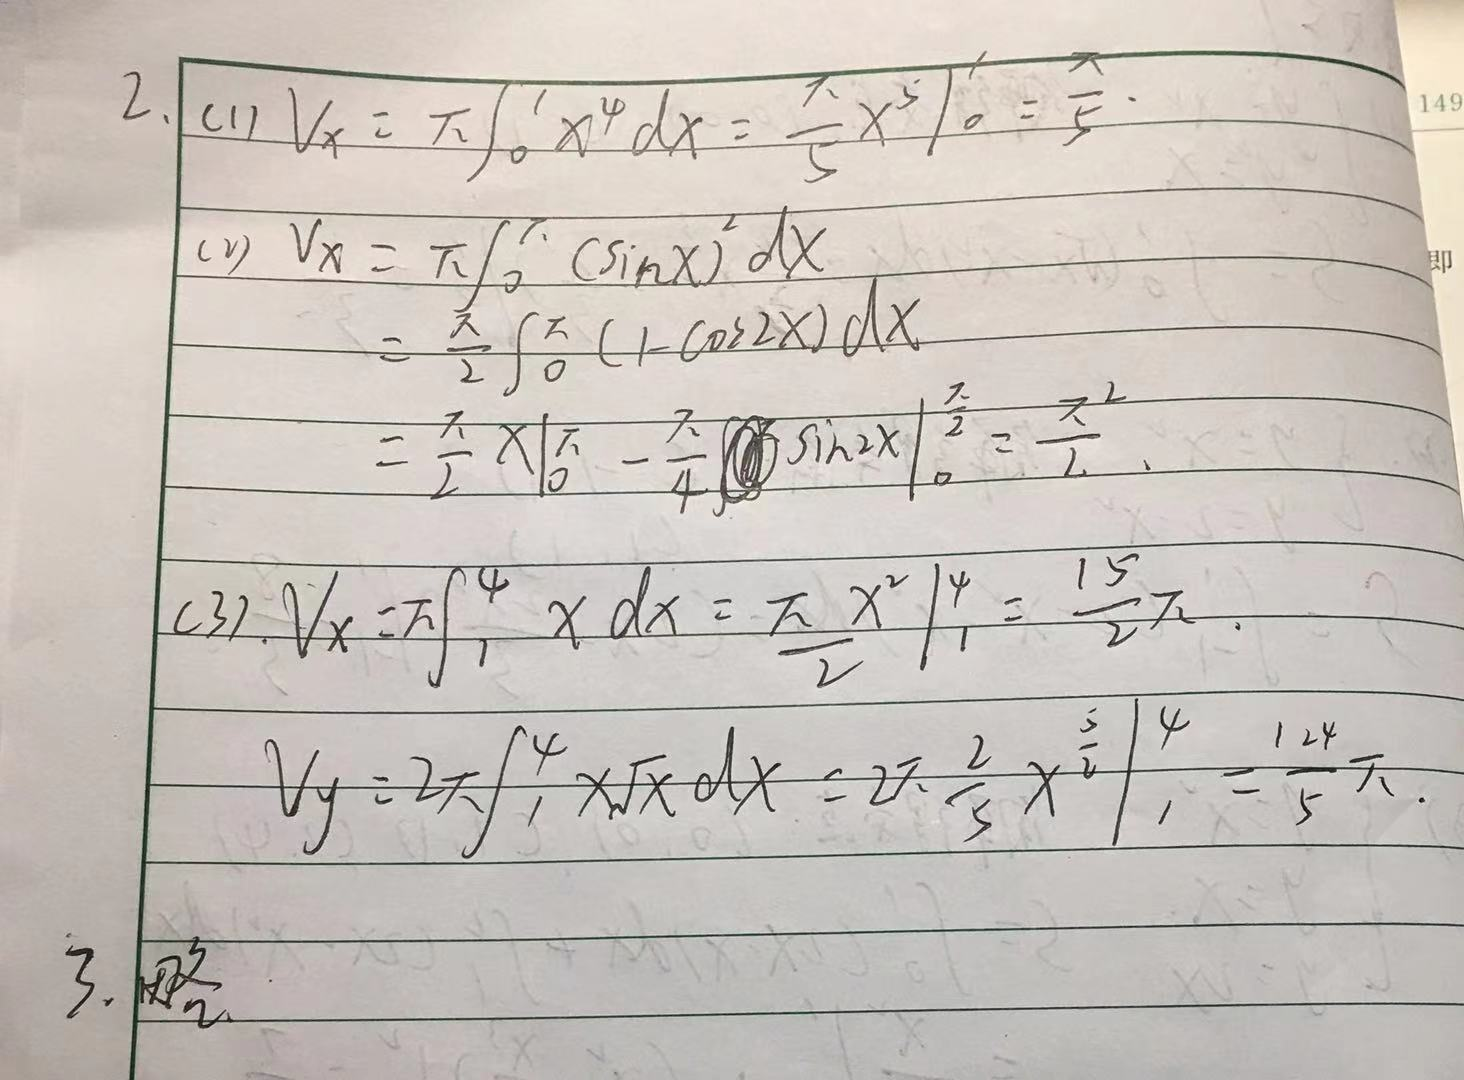 2. (1) Vx = π∫₀¹ x⁴ dx = π/5 x⁵ |₀¹ = π/5.
149
(2) Vx = π∫₀^π (sinx)² dx
即
= π/2 ∫₀^π (1-cos2x) dx
= π/2 x|₀^π - π/4 sin2x |₀^(π/2) = π²/2.
(3). Vx = π∫₁⁴ x dx = π/2 x² |₁⁴ = 15/2 π.
Vy = 2π∫₁⁴ x√x dx = 2π 2/5 x^(5/2) |₁⁴ = 124/5 π.
3. 略.